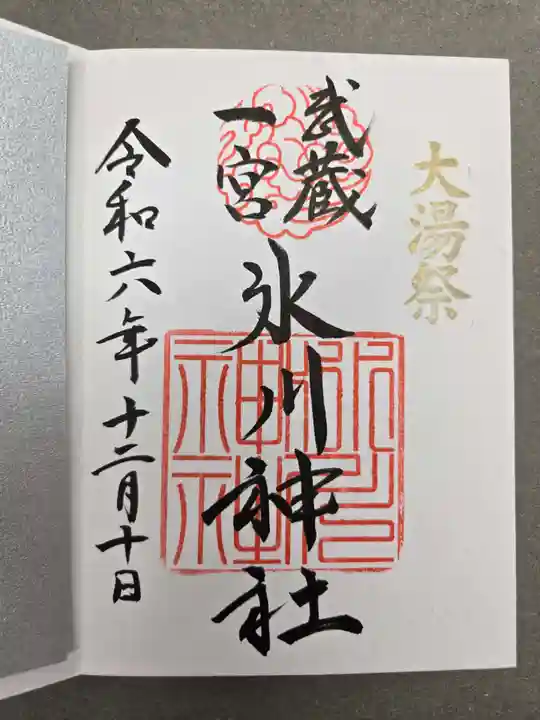 大湯祭
武蔵
一宮
氷川神社
令和六年十二月十日
氷川
神社